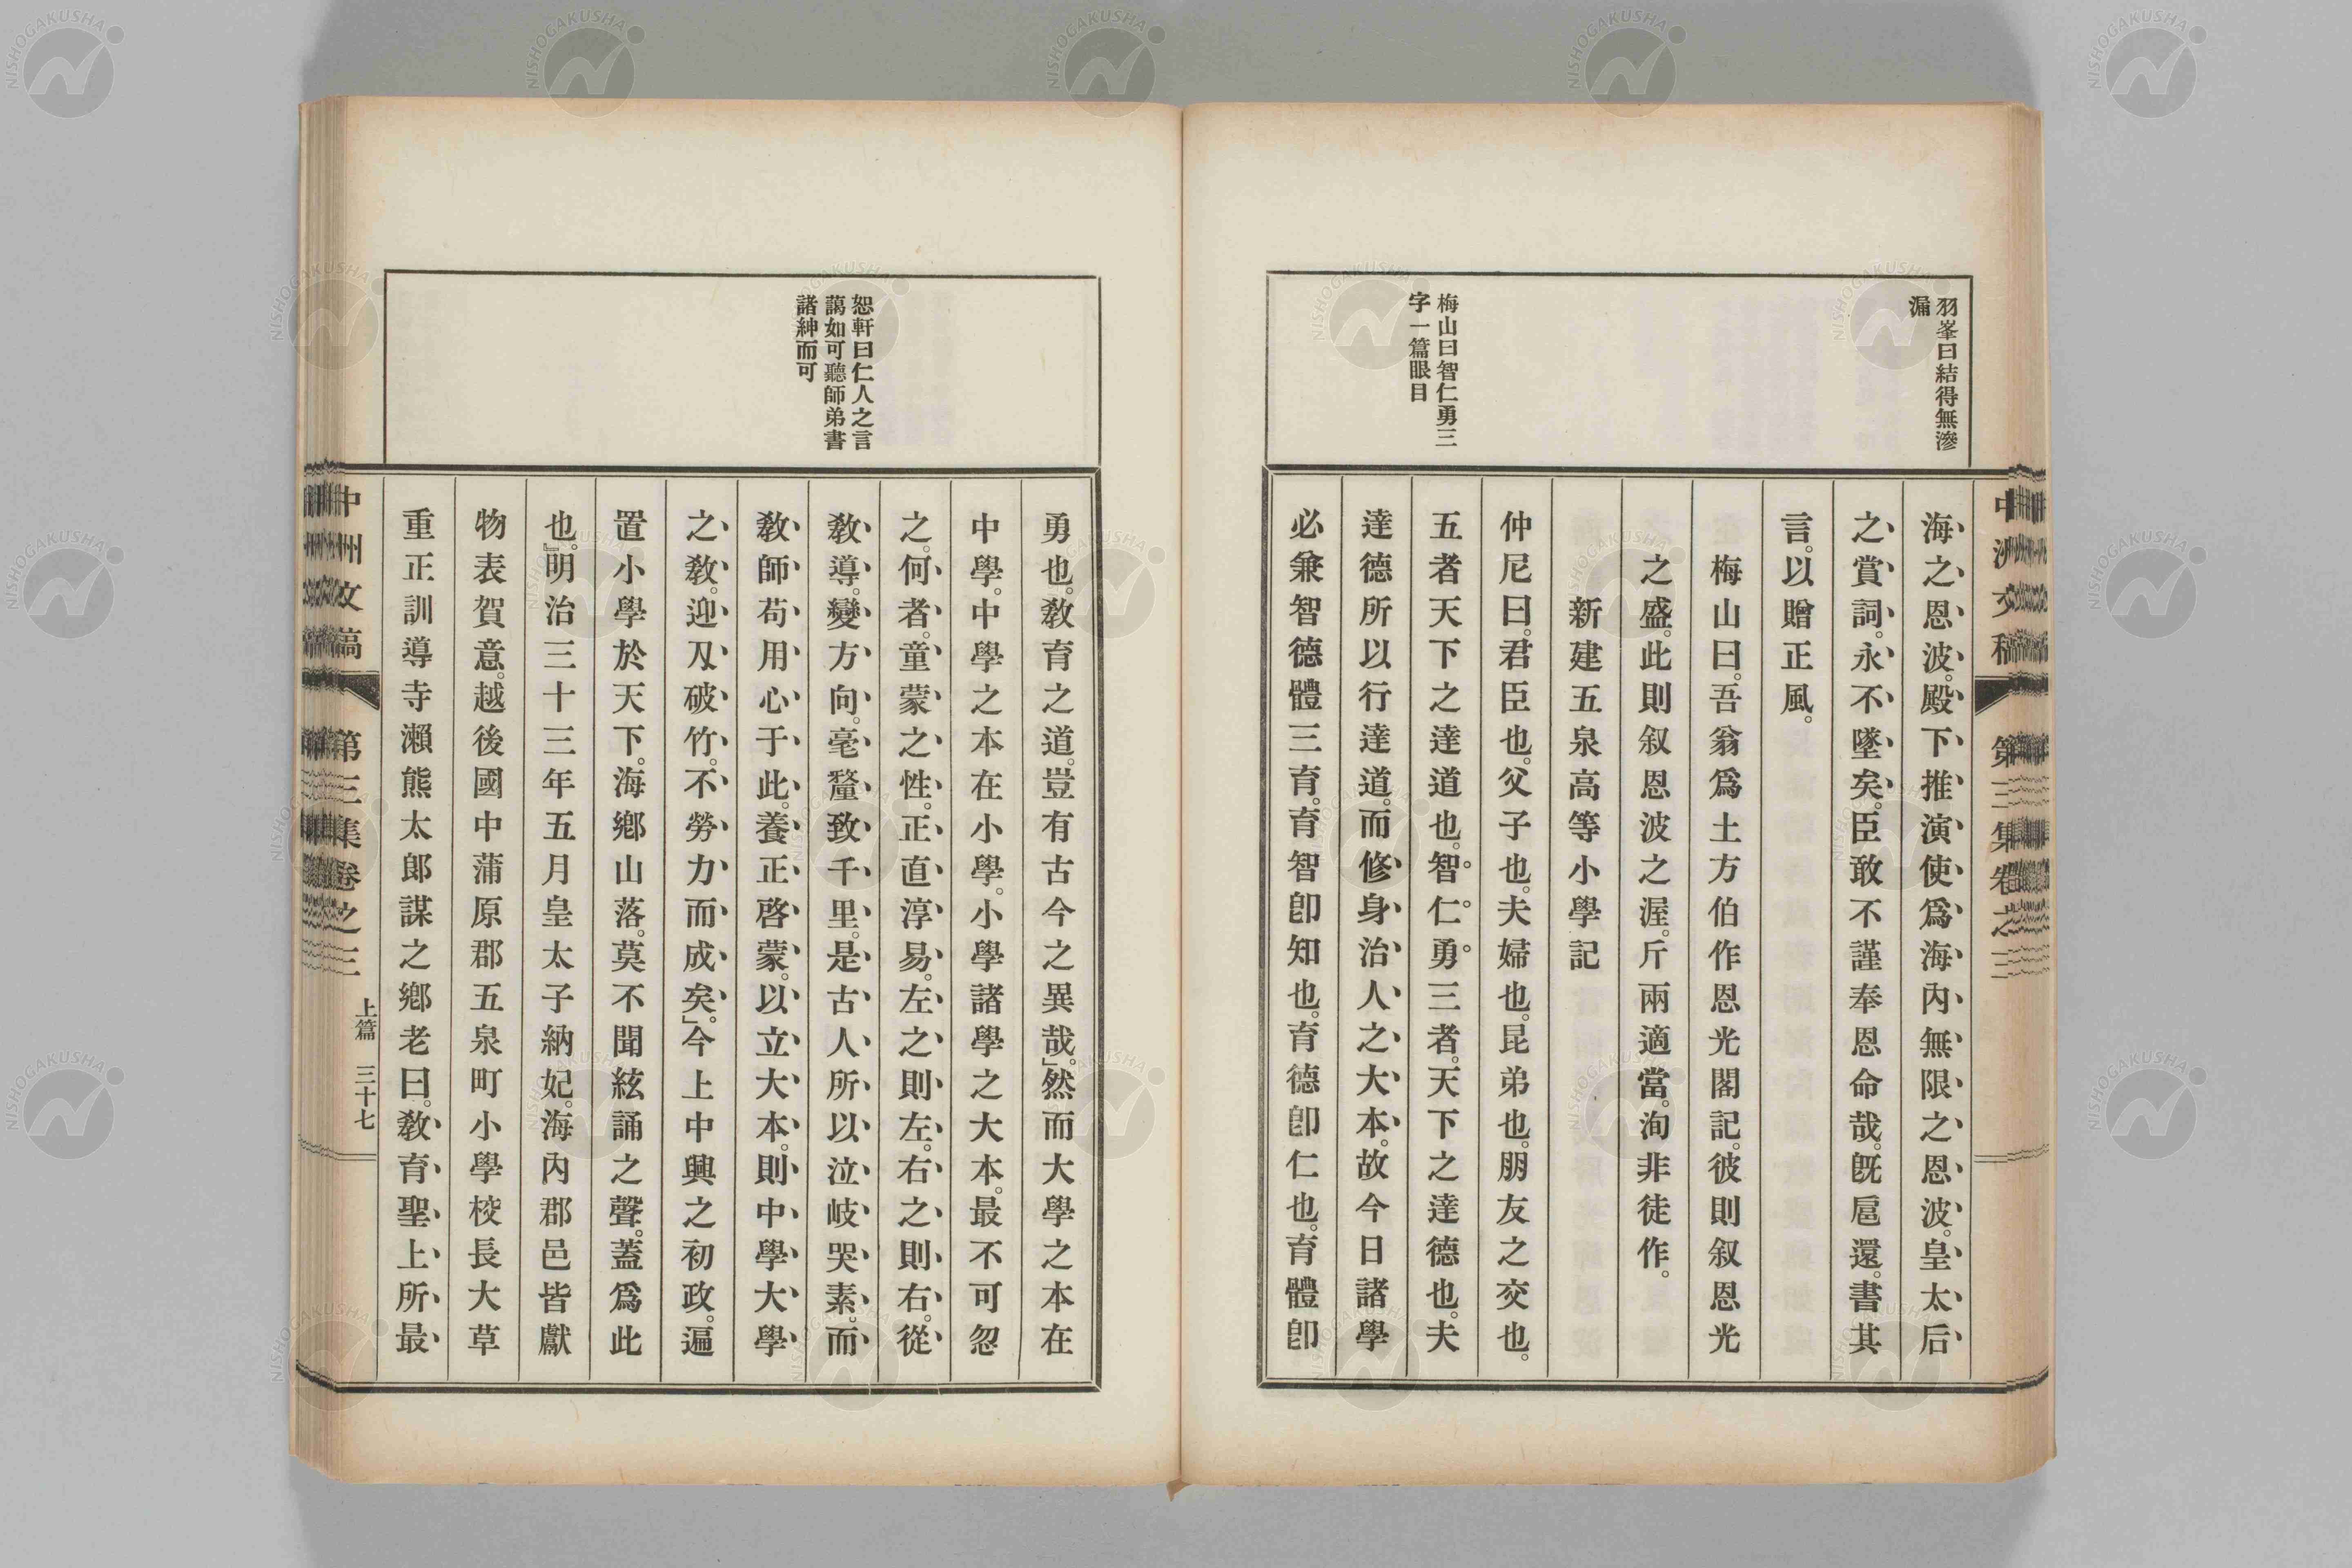 羽峯曰結得無滲
漏
梅山曰智仁勇三
字一篇眼目
海之恩波。殿下推演使爲海內無限之恩波。皇太后
之賞詞。永不墜矣。臣敢不謹奉恩命哉。旣扈還。書其
言。以贈正風。
梅山曰。吾翁爲土方伯作恩光閣記。彼則叙恩光
之盛。此則叙恩波之渥。斤兩適當。洵非徒作。
新建五泉高等小學記
仲尼曰。君臣也。父子也。夫婦也。昆弟也。朋友之交也。
五者天下之達道也。智。仁。勇。三者。天下之達德也。夫
達德所以行達道。而修身治人之大本。故今日諸學
必兼智德體三育。育智卽知也。育德卽仁也。育體卽
恕軒曰仁人之言
藹如可聽師弟書
諸紳而可
勇也。敎育之道。豈有古今之異哉。」然而大學之本在
中學。中學之本在小學。小學諸學之大本。最不可忽
之。何者。童蒙之性。正直淳易。左之則左。右之則右。從
敎導。變方向。毫釐致千里。是古人所以泣岐哭素。而
敎師苟用心于此。養正啓蒙。以立大本。則中學大學
之敎。迎刃破竹。不勞力而成矣。」今上中興之初政。遍
置小學於天下。海鄕山落。莫不聞絃誦之聲。蓋爲此
也。』明治三十三年五月皇太子納妃。海內郡邑皆獻
物表賀意。越後國中蒲原郡五泉町小學校長大草
重正訓導寺瀨熊太郞謀之鄕老曰。敎育聖上所最
中州文稿
第三集卷之三
上篇
三十七
NISHOGAKUSHA